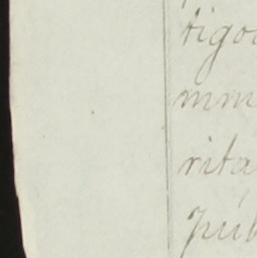 tigo
mm
rita
púb